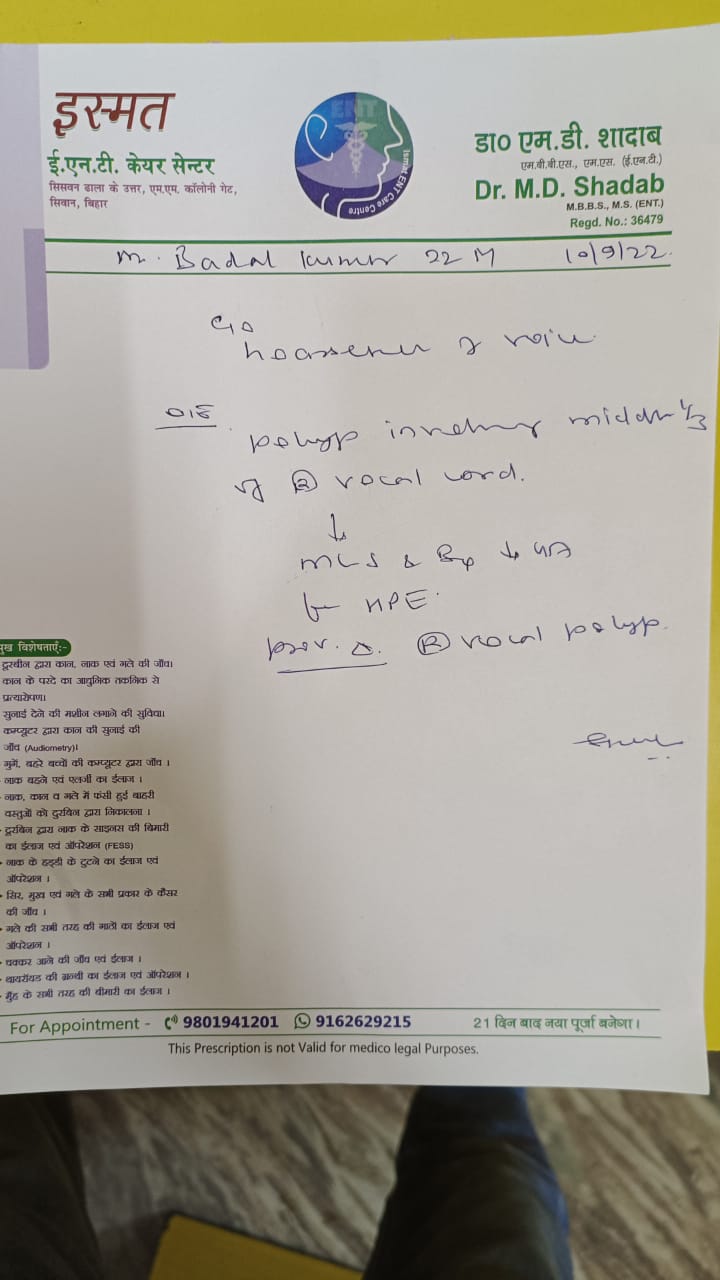 इस्मत
ई.एन.टी. केयर सेन्टर
सिसवन ढाला के उत्तर, एम.एम. कॉलोनी गेट,
सिवान, बिहार
ENT
Ismat ENT Care Centre
डा० एम.डी. शादाब
एम.बी.बी.एस., एम.एस. (ई.एन.टी.)
Dr. M.D. Shadab
M.B.B.S., M.S. (ENT.)
Regd. No.: 36479
Mr. Badal Kumar 22 M 10/9/22
C/o
hoarseness of voice
O/E polyp involving middle 1/3
of (R) vocal cord.
↓
MLS & Bx ↓ GA
for HPE.
prov. Δ. (R) vocal polyp.
मुख विशेषताएँ:-
दूरबीन द्वारा कान, नाक एवं गले की जाँच।
कान के परदे का आधुनिक तकनिक से
प्रत्यारोपण।
सुनाई देने की मशीन लगाने की सुविधा।
कम्प्यूटर द्वारा कान की सुनाई की
जाँच (Audiometry)।
गुमें, बहरे बच्चों की कम्प्यूटर द्वारा जाँच ।
नाक बहने एवं एलर्जी का ईलाज ।
नाक, कान व गले में फंसी हुई बाहरी
वस्तुओं को दुरबिन द्वारा निकालना ।
दूरबिन द्वारा नाक के साइनस की बिमारी
का ईलाज एवं ऑपरेशन (FESS)
नाक के हड्डी के टुटने का ईलाज एवं
ऑपरेशन ।
सिर, मुख एवं गले के सभी प्रकार के कैंसर
की जाँच ।
गले की सभी तरह की गाठों का ईलाज एवं
ऑपरेशन ।
चक्कर आने की जाँच एवं ईलाज ।
थायरॉयड की ग्रन्थी का ईलाज एवं ऑपरेशन ।
मुँह के सभी तरह की बीमारी का ईलाज ।
For Appointment - 9801941201 9162629215 21 दिन बाद नया पूर्जा बनेगा ।
This Prescription is not Valid for medico legal Purposes.